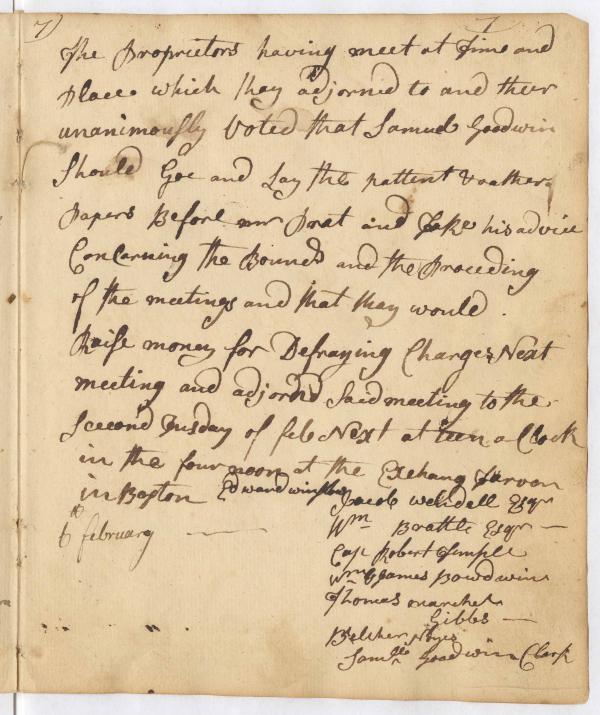 7) 7
The Proprietors having meet at Time and
Place which they adjorned to and then
unanimously Voted that Samuel Goodwin
Should Goe and Lay the pattent & other
Papers Before mr Prat and Take his advice
Concarning the Bounds and the Proceding
of the meetings and that they would
Raise money for Defraying Charges Next
meeting and adjornd Said meeting to the
Seecond Tusday of feb Next at teen a Clock
in the four noon at the Exchang Tarvon
in Boston Edward winslow Jacob wendell Esqr
Wm Brattle Esqr
6 february
Cap Robert Temple
Wm & James Bowdwin
Thomas marshel
Gibbs
Belcher Noyes
Samll Goodwin Clark